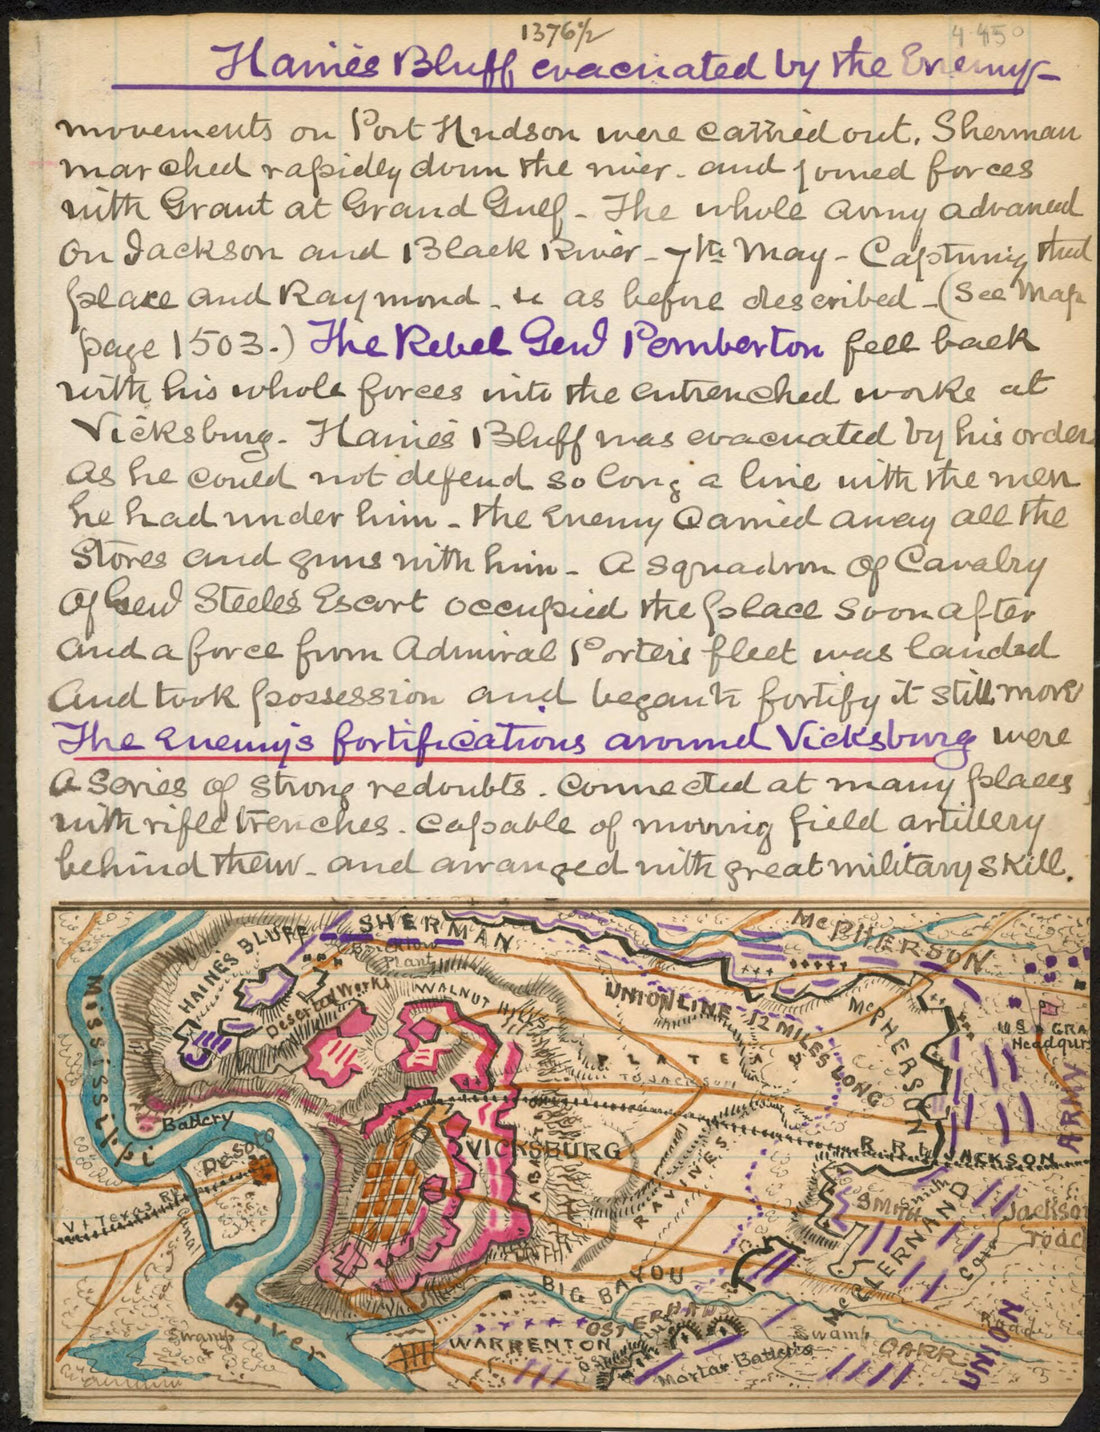 1376½
4.450
Haines Bluff evacuated by the Enemy-
movements on Port Hudson were carried out. Sherman
marched rapidly down the river. and joined forces
with Grant at Grand Gulf - The whole army advanced
on Jackson and Black River - 7th May - Capturing that
place and Raymond. &c as before described - (See Map
page 1503.) The Rebel Genl Pemberton fell back
with his whole forces into the entrenched works at
Vicksburg. Haines Bluff was evacuated by his order
As he could not defend so long a line with the men
he had under him - The Enemy Carried away all the
Stores and guns with him - A squadron of Cavalry
of Genl Steele's Escort occupied the place soon after
and a force from Admiral Porter's fleet was landed
And took possession and began to fortify it still more
The Enemy's fortifications around Vicksburg were
A Series of strong redoubts. Connected at many places
with rifle trenches. capable of moving field artillery
behind them. and arranged with great military skill.
SHERMAN
McPHERSON
HAINES BLUFF
Plant
Deserted Works
WALNUT HILLS
UNION LINE 12 MILES LONG
McPHERSON
U.S. GRA
Headqurs
ARMY
Mississippi
PLATEAU
TO JACKSON
Battery
De Soto
VICKSBURG
ABATTIS
RAVINES
R.R.
JACKSON
V & Texas R.
Canal
Smith
SMITH
McCLERNAND
Jackson
road
BIG BAYOU
River
Swamp
WARRENTON
OSTERHAUS
Mortar Batteries
Swamp
CARR
Roads
UNION